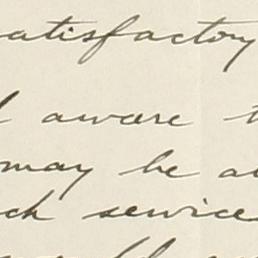 satisfactory
aware
may be
such service